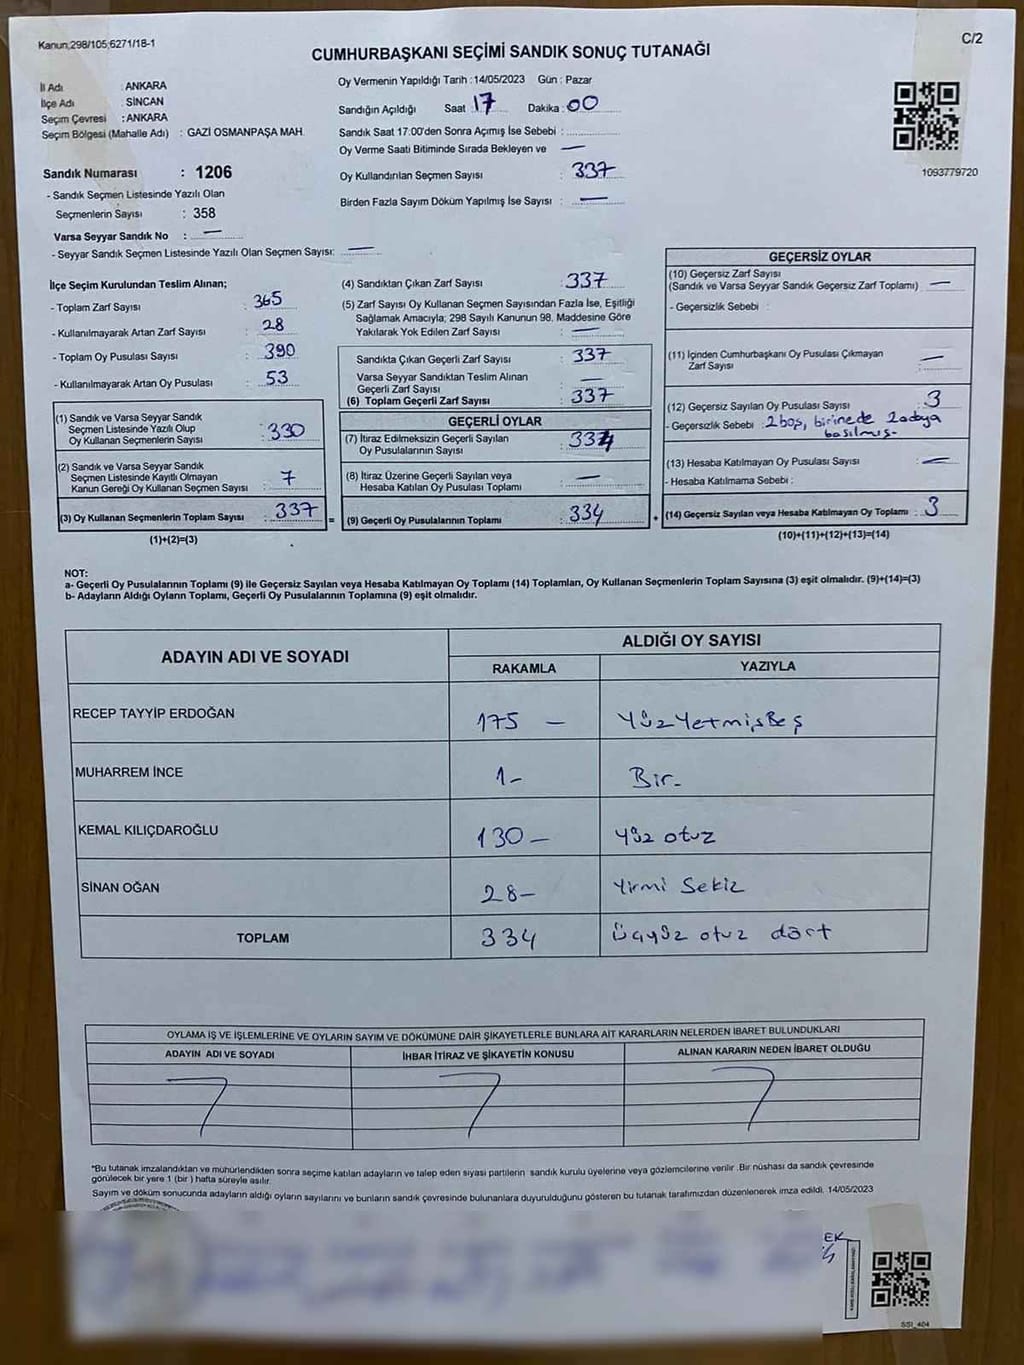 Kanun;298/105;6271/18-1
C/2
CUMHURBAŞKANI SEÇİMİ SANDIK SONUÇ TUTANAĞI
İl Adı : ANKARA
İlçe Adı : SİNCAN
Seçim Çevresi : ANKARA
Seçim Bölgesi (Mahalle Adı) : GAZİ OSMANPAŞA MAH.
Oy Vermenin Yapıldığı Tarih : 14/05/2023 Gün : Pazar
Sandığın Açıldığı Saat : 17 Dakika : 00
Sandık Saat 17:00'den Sonra Açımış İse Sebebi :
Oy Verme Saati Bitiminde Sırada Bekleyen ve —
Oy Kullandırılan Seçmen Sayısı : 337
Birden Fazla Sayım Döküm Yapılmış İse Sayısı : —
1093779720
Sandık Numarası : 1206
- Sandık Seçmen Listesinde Yazılı Olan
Seçmenlerin Sayısı : 358
Varsa Seyyar Sandık No : —
- Seyyar Sandık Seçmen Listesinde Yazılı Olan Seçmen Sayısı: —
İlçe Seçim Kurulundan Teslim Alınan;
- Toplam Zarf Sayısı : 365
- Kullanılmayarak Artan Zarf Sayısı : 28
- Toplam Oy Pusulası Sayısı : 390
- Kullanılmayarak Artan Oy Pusulası : 53
(1) Sandık ve Varsa Seyyar Sandık
Seçmen Listesinde Yazılı Olup
Oy Kullanan Seçmenlerin Sayısı : 330
(2) Sandık ve Varsa Seyyar Sandık
Seçmen Listesinde Kayıtlı Olmayan
Kanun Gereği Oy Kullanan Seçmen Sayısı : 7
(3) Oy Kullanan Seçmenlerin Toplam Sayısı : 337 =
(1)+(2)=(3)
(4) Sandıktan Çıkan Zarf Sayısı : 337
(5) Zarf Sayısı Oy Kullanan Seçmen Sayısından Fazla İse, Eşitliği
Sağlamak Amacıyla; 298 Sayılı Kanunun 98. Maddesine Göre
Yakılarak Yok Edilen Zarf Sayısı : —
Sandıkta Çıkan Geçerli Zarf Sayısı : 337
Varsa Seyyar Sandıktan Teslim Alınan
Geçerli Zarf Sayısı : —
(6) Toplam Geçerli Zarf Sayısı : 337
GEÇERLİ OYLAR
(7) İtiraz Edilmeksizin Geçerli Sayılan
Oy Pusulalarının Sayısı : 334
(8) İtiraz Üzerine Geçerli Sayılan veya
Hesaba Katılan Oy Pusulası Toplamı : —
(9) Geçerli Oy Pusulalarının Toplamı : 334 +
GEÇERSİZ OYLAR
(10) Geçersiz Zarf Sayısı
(Sandık ve Varsa Seyyar Sandık Geçersiz Zarf Toplamı) : —
- Geçersizlik Sebebi :
(11) İçinden Cumhurbaşkanı Oy Pusulası Çıkmayan
Zarf Sayısı : —
(12) Geçersiz Sayılan Oy Pusulası Sayısı : 3
- Geçersizlik Sebebi : 2 boş, birinede 2 adaya
basılmış-
(13) Hesaba Katılmayan Oy Pusulası Sayısı : —
- Hesaba Katılmama Sebebi :
(14) Geçersiz Sayılan veya Hesaba Katılmayan Oy Toplamı : 3
(10)+(11)+(12)+(13)=(14)
NOT:
a- Geçerli Oy Pusulalarının Toplamı (9) ile Geçersiz Sayılan veya Hesaba Katılmayan Oy Toplamı (14) Toplamları, Oy Kullanan Seçmenlerin Toplam Sayısına (3) eşit olmalıdır. (9)+(14)=(3)
b- Adayların Aldığı Oyların Toplamı, Geçerli Oy Pusulalarının Toplamına (9) eşit olmalıdır.
ADAYIN ADI VE SOYADI
ALDIĞI OY SAYISI
RAKAMLA YAZIYLA
RECEP TAYYİP ERDOĞAN 175 — YüzYetmişBeş
MUHARREM İNCE 1- Bir-
KEMAL KILIÇDAROĞLU 130 — yüz otuz
SİNAN OĞAN 28- Yirmi Sekiz
TOPLAM 334 üçyüz otuz dört
OYLAMA İŞ VE İŞLEMLERİNE VE OYLARIN SAYIM VE DÖKÜMÜNE DAİR ŞİKAYETLERLE BUNLARA AİT KARARLARIN NELERDEN İBARET BULUNDUKLARI
ADAYIN ADI VE SOYADI İHBAR İTİRAZ VE ŞİKAYETİN KONUSU ALINAN KARARIN NEDEN İBARET OLDUĞU
*Bu tutanak imzalandıktan ve mühürlendikten sonra seçime katılan adayların ve talep eden siyasi partilerin sandık kurulu üyelerine veya gözlemcilerine verilir .Bir nüshası da sandık çevresinde
görülecek bir yere 1 (bir ) hafta süreyle asılır.
Sayım ve döküm sonucunda adayların aldığı oyların sayılarını ve bunların sandık çevresinde bulunanlara duyurulduğunu gösteren bu tutanak tarafımızdan düzenlenerek imza edildi. 14/05/2023
EK
SSI_404